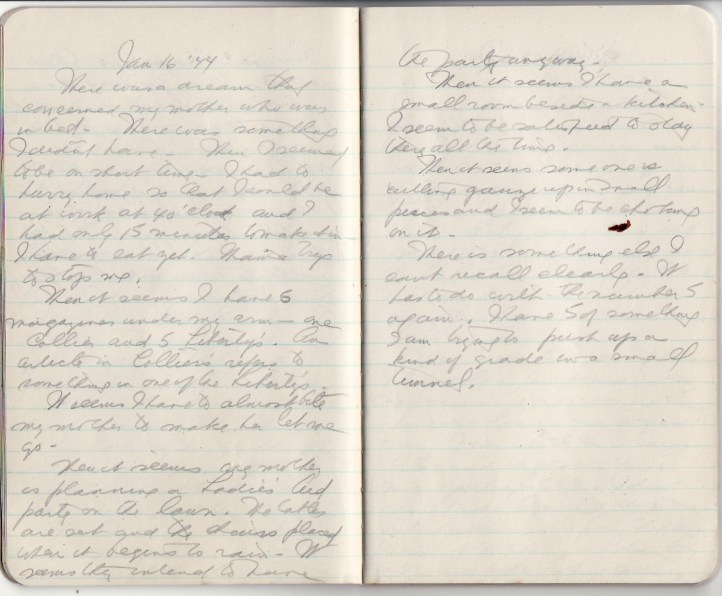 Jan 16 '44
There was a dream that
concerned my mother who was
in bed. There was something
I didnt have. Then I seemed
to be on short time. I had to
hurry home so that I could be
at work at 4 o'clock and I
had only 15 minutes to make it in
I have to eat yet. Mama trys
to stop me.
Then it seems I have 6
magazines under my arm - one
Collier and 5 Libertys. An
article in Colliers refers to
something in one of the Liberty's.
It seems I have to almost bite
my mother to make her let me
go -
Then it seems my mother
is planning a Ladies Aid
party on the lawn. The tables
are set and the chairs placed
when it begins to rain - It
seems they intend to have
the party anyway.
Then it seems I have a
small room beside a kitchen -
I seem to be satisfied to stay
there all the time.
Then it seems some one is
cutting gauze up in small
pieces and I seem to be choking
on it -
There is something else I
cant recall clearly. It
has to do with the number 5
again. I have 5 of something
I am trying to push up a
kind of grade in a small
tunnel.